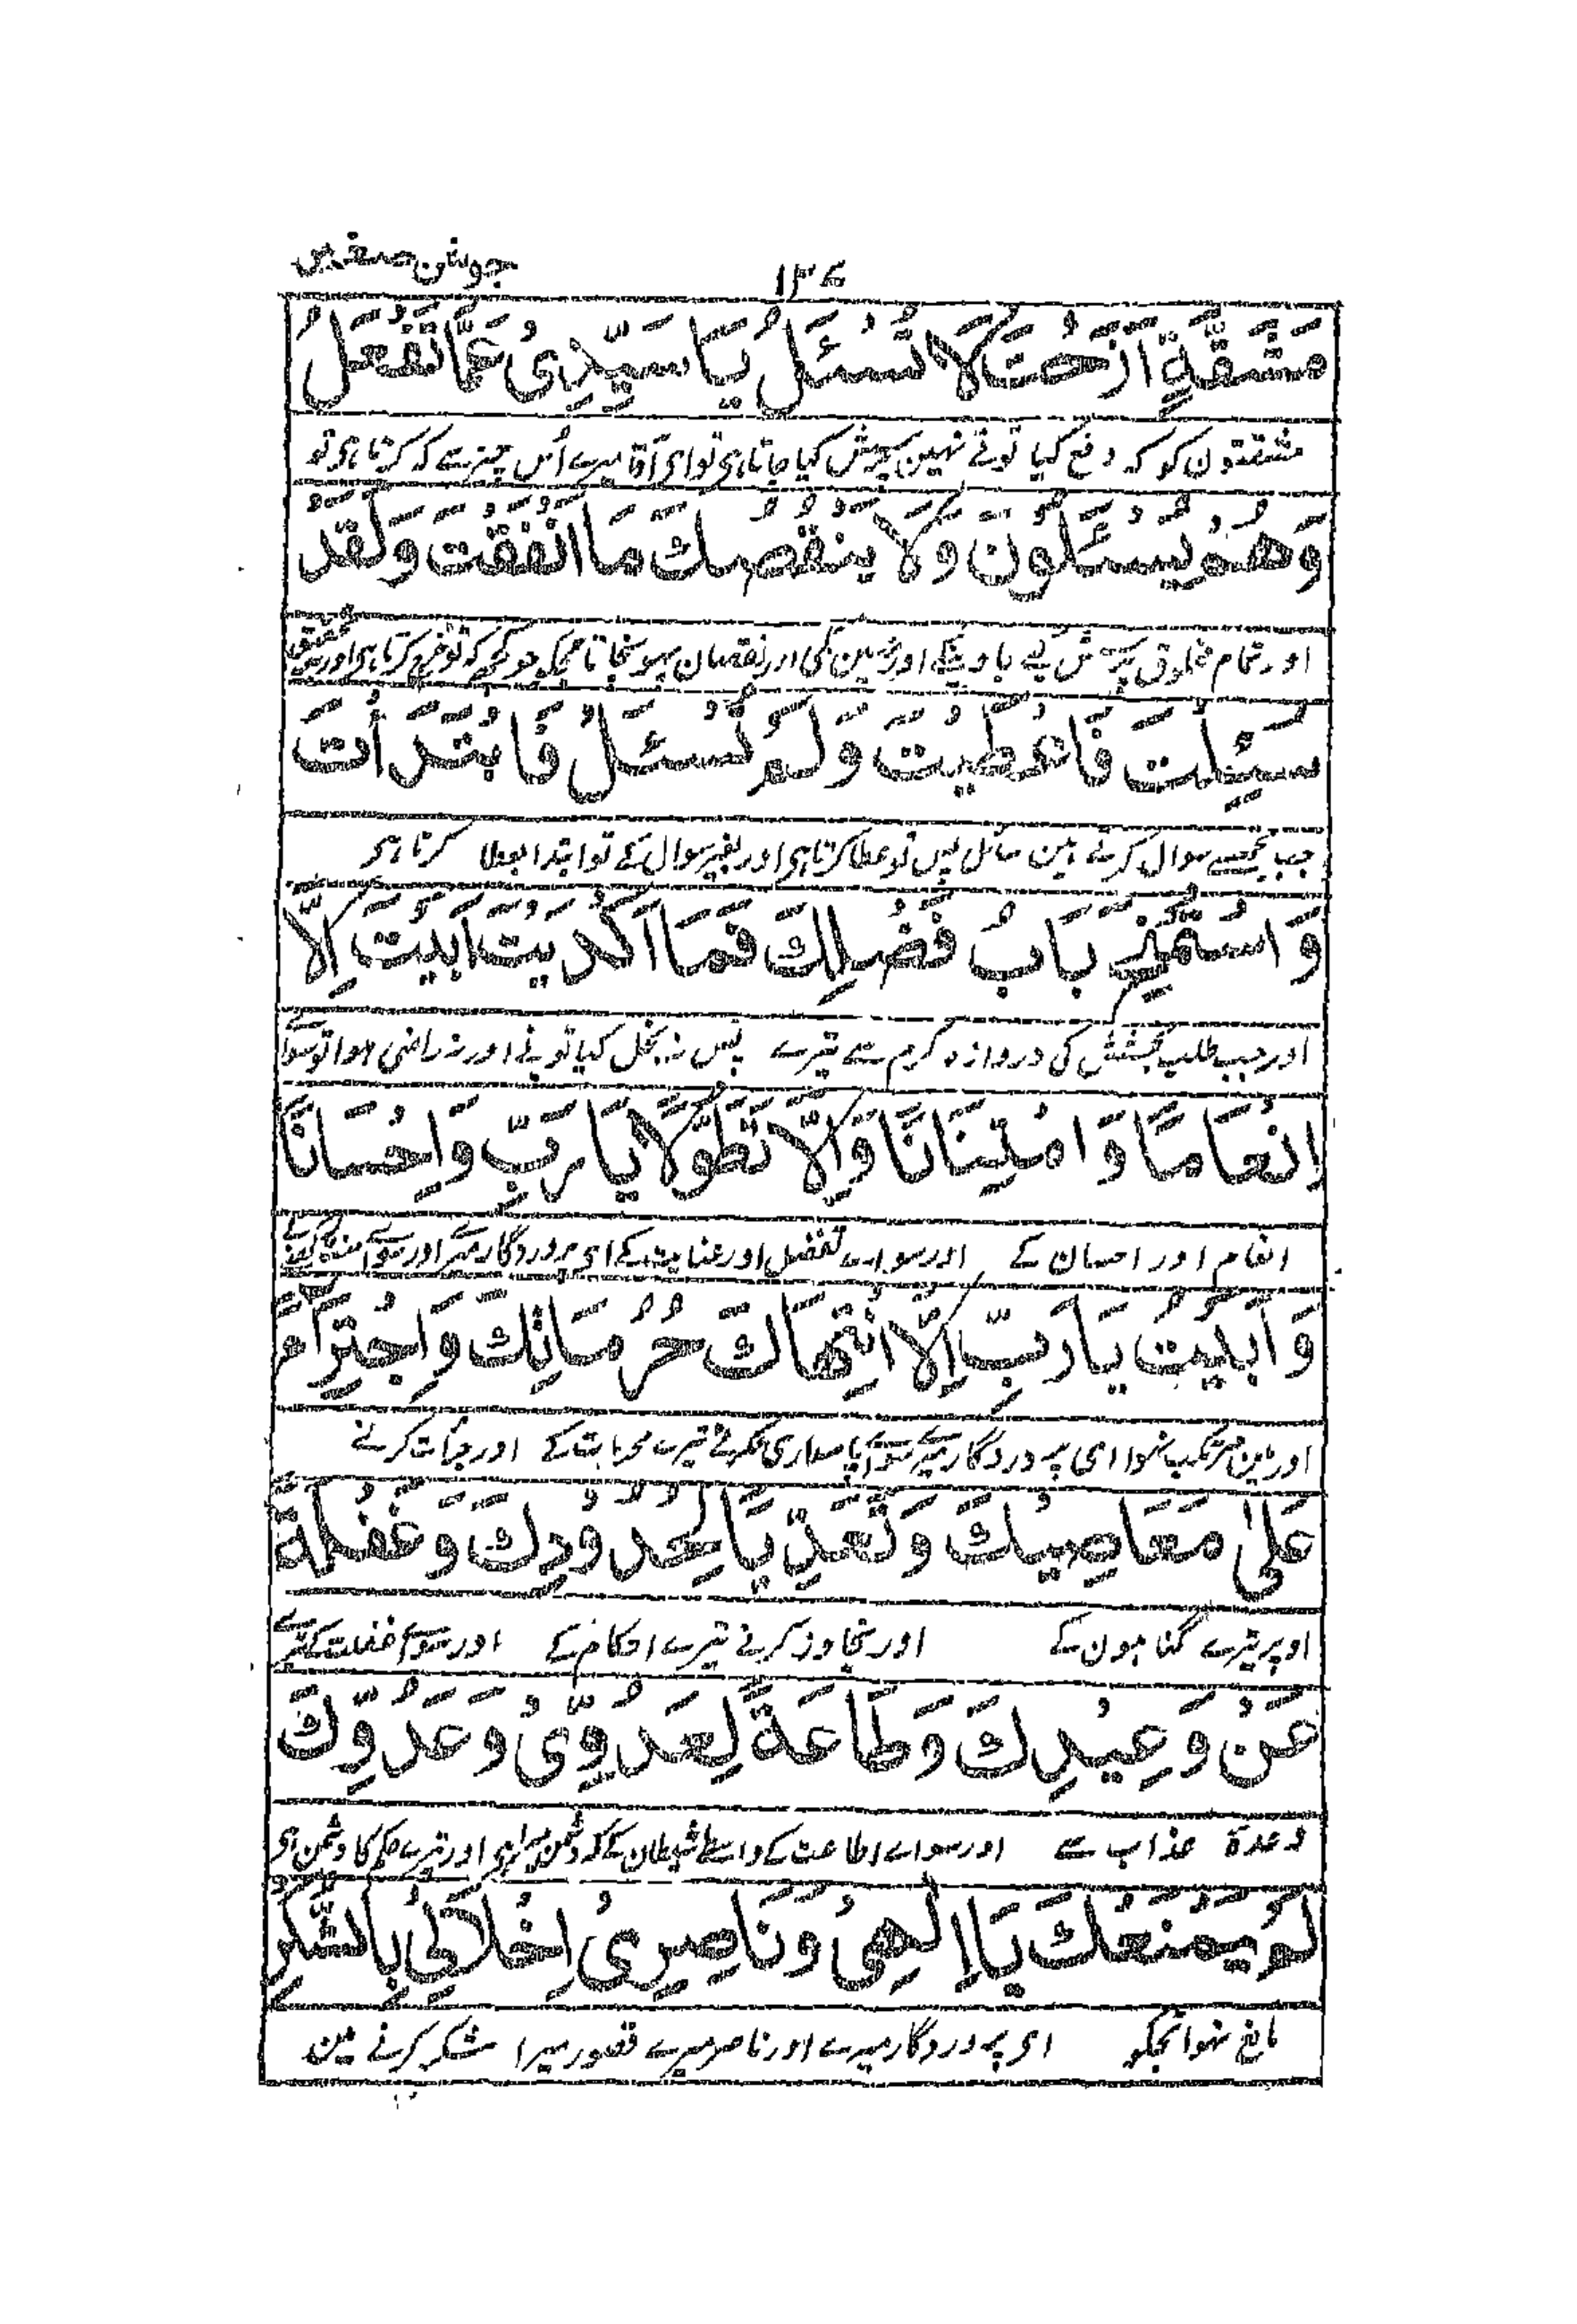 جوشن صغیر
۱۳۶
مَشَقَّةٍ اَزَحْتَ لَا تُسْئَلُ يَا سَيِّدِىْ عَمَّا تَفْعَلُ
مشقتون کو کہ دفع کیا تونے نہین پرسش کیا جاتا ہی تو ای آقا میرے اُس چیز سے کہ کرتا ہی تو
وَهُمْ يُسْئَلُوْنَ وَلَا يَنْقُصُكَ مَا اَنْفَقْتَ وَلَقَدْ
اور تمام مخلوق پرسش کیے جاوینگے اور نہین کمی اور نقصان پہونچاتا تجھکو جو کچھ کہ تو خرچ کرتا ہی اور
سُئِلْتَ فَاَعْطَيْتَ وَلَمْ تُسْئَلْ فَابْتَدَأْتَ
جب تجھسے سوال کرتے ہین سائل پس تو عطا کرتا ہی اور بغیر سوال کے تو ابتدا بعطا کرتا ہی
وَاسْتُمِيْحَ بَابُ فَضْلِكَ فَمَا اَكْدَيْتَ اَبَيْتَ اِلَّا
اور جب طلب بخشش کی دروازہ کرم سے تیرے پس نہ بخل کیا تونے اور نہ راضی ہوا تو سوائے
اِنْعَامًا وَّامْتِنَانًا وَّاِلَّا تَطَوُّلًا يَا رَبِّ وَاِحْسَانًا
انعام اور احسان کے اور سواے تفضل اور عنایت کے ای پروردگار میرے اور سوائے
وَاَبَيْتُ يَا رَبِّ اِلَّا انْتِهَاكَ حُرُمَاتِكَ وَاجْتِرَاءً
اور مین مرتکب نہوا ای پروردگار میرے سوائے پاسداری نکرنے تیرے محرمات کے اور جرأت کرنے
عَلٰى مَعَاصِيْكَ وَتَعَدِّيًا لِحُدُوْدِكَ وَغَفْلَةً
اوپر تیرے گناہون کے اور تجاوز کرنے تیرے احکام کے اور سوائے غفلت کے تیرے
عَنْ وَعِيْدِكَ وَطَاعَةً لِعَدُوِّىْ وَعَدُوِّكَ
وعدۂ عذاب سے اور سواے اطاعت کے واسطے شیطان کے کہ دشمن میرا ہی اور تیرے حکم کا دشمن ہی
لَمْ يَمْنَعْكَ يَا اِلٰهِىْ وَنَاصِرِىْ اِخْلَالِىْ بِالشُّكْرِ
مانع نہوا تجکو ای پروردگار میرے اور ناصر میرے قصور میرا شکر کرنے مین